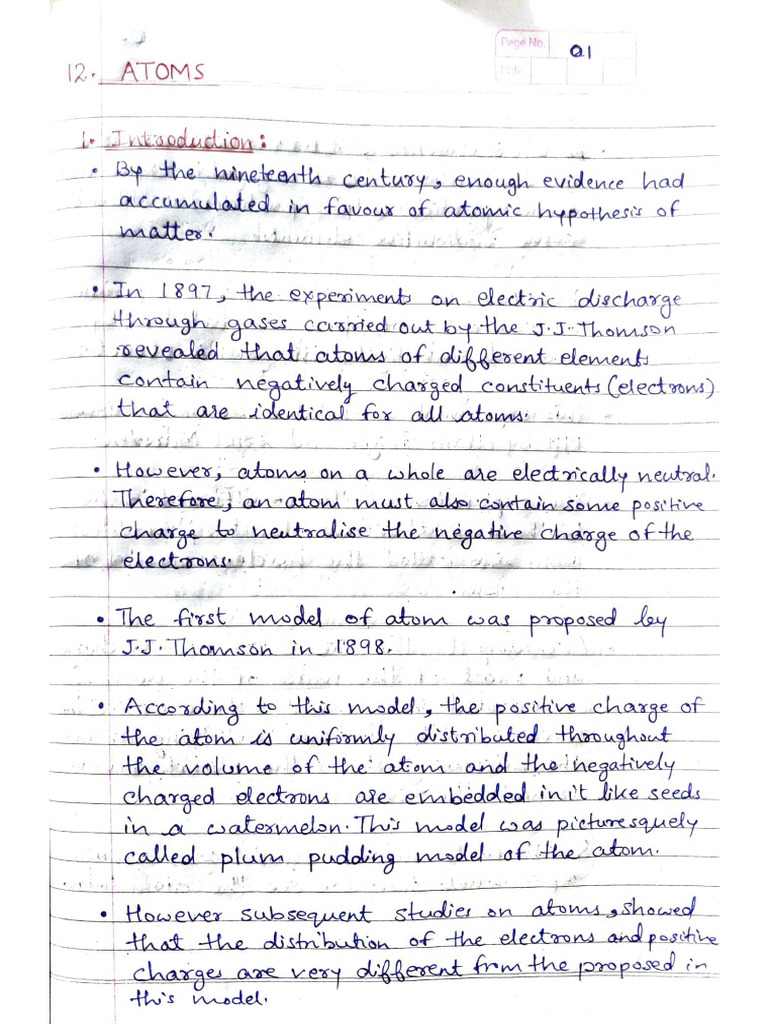 Page No. 01
12. ATOMS
1. Introduction:
• By the nineteenth century, enough evidence had
accumulated in favour of atomic hypothesis of
matter.
• In 1897, the experiments on electric discharge
through gases carried out by the J.J. Thomson
revealed that atoms of different elements
contain negatively charged constituents (electrons)
that are identical for all atoms.
• However, atoms on a whole are electrically neutral.
Therefore, an atom must also contain some positive
charge to neutralise the negative charge of the
electrons.
• The first model of atom was proposed by
J.J. Thomson in 1898.
• According to this model, the positive charge of
the atom is uniformly distributed throughout
the volume of the atom and the negatively
charged electrons are embedded in it like seeds
in a watermelon. This model was picturesquely
called plum pudding model of the atom.
• However subsequent studies on atoms, showed
that the distribution of the electrons and positive
charges are very different from the proposed in
this model.